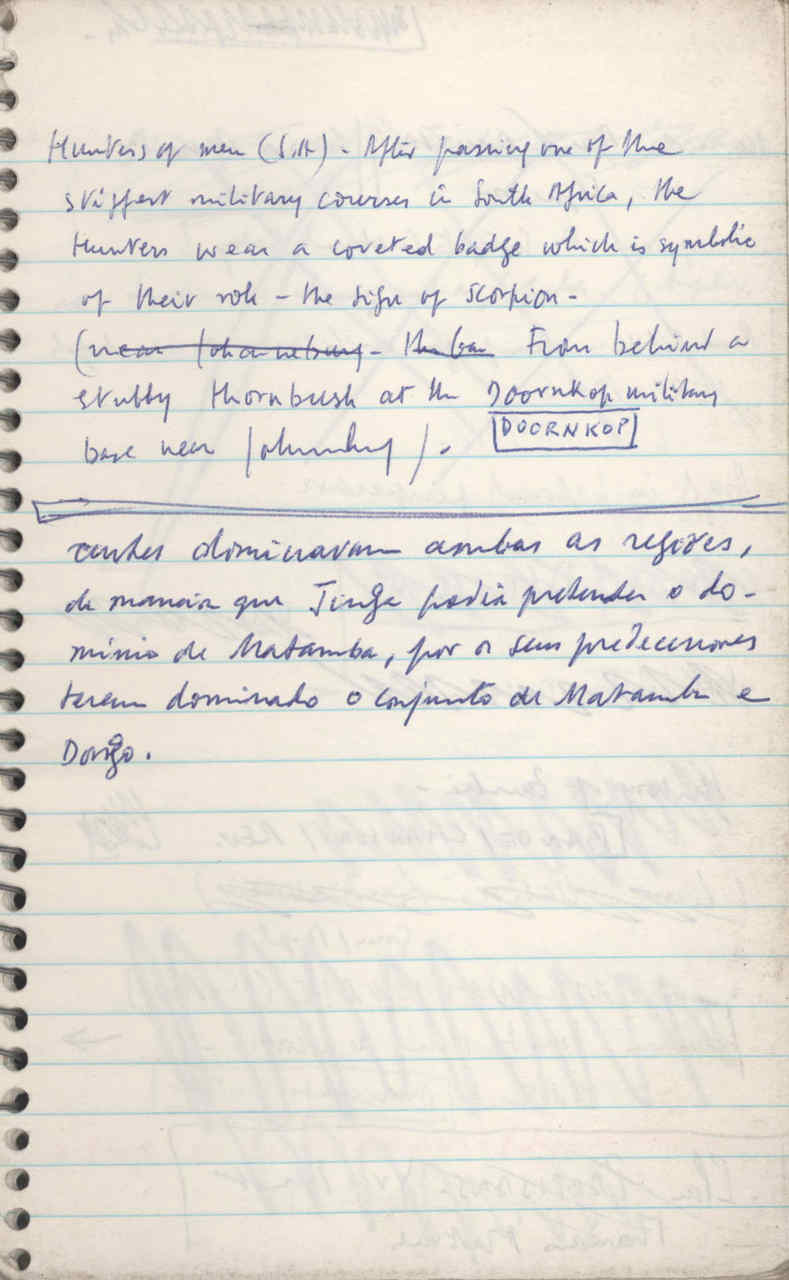 Hunters of men (S.A) - After passing one of the
stiffest military courses in South Africa, the
Hunters wear a coveted badge which is symbolic
of their role - the sign of scorpion -
(near Johannesburg - From behind a
stubby thornbush at the Doornkop military
DOORNKOP
base near Johannesburg).
centes dominavam ambas as regiões,
de maneira que Jinga podia pretender o do-
mínio de Matamba, por os seus predecessores
terem dominado o conjunto de Matamba e
Dongo.